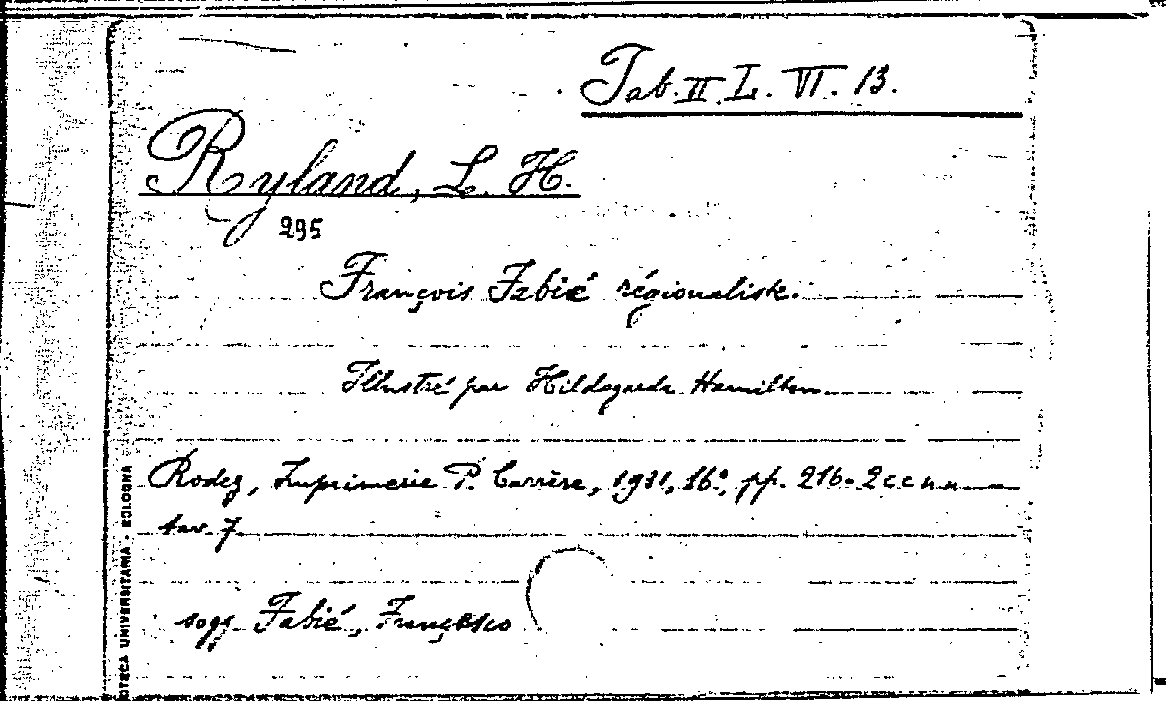 Tab. II. L. VI. 13.
Ryland, L. H.
295
François Fabié régionaliste.
Illustré par Hildegarde Hamilton
Rodez, Imprimerie P. Carrère, 1931, 16°, pp. 216-2 cc n.n.
tav. 7
sogg. Fabié, Francesco
OTECA UNIVERSITARIA - BOLOGNA